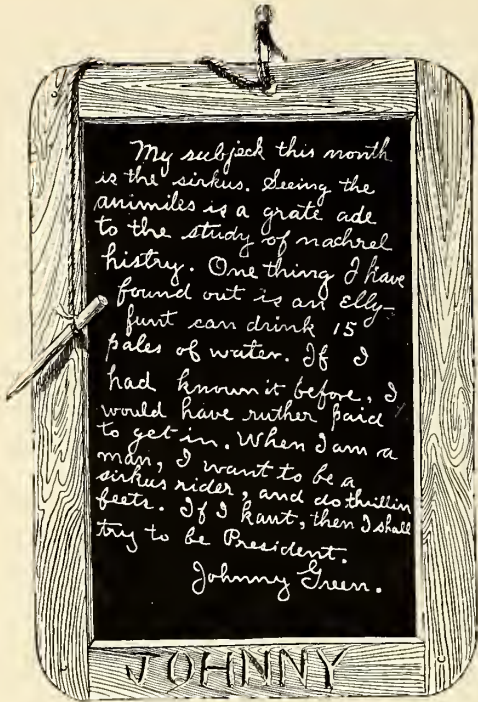 My subjeck this month
is the sirkus. Seeing the
animiles is a grate ade
to the study of nachrel
histry. One thing I have
found out is an Elly-
funt can drink 15
pales of water. If I
had known it before, I
would have ruther paid
to get in. When I am a
man, I want to be a
sirkus rider, and do thrillin
feets. If I kant, then I shall
try to be President.
Johnny Green.
JOHNNY